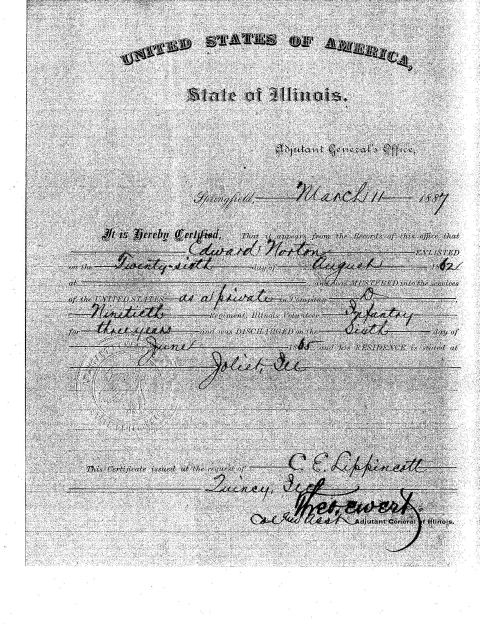 UNITED STATES OF AMERICA,
State of Illinois.
Adjutant General's Office,
Springfield March 11 1887
It is Hereby Certified, That it appears from the Records of this office that
Edward Norton ENLISTED
on the Twenty-sixth day of August 1862
at and was MUSTERED into the services
of the UNITED STATES as a private in Company D
Ninetieth Regiment, Illinois Volunteer Infantry
for three years and was DISCHARGED on the Sixth day of
June 1865 and his RESIDENCE is stated at
Joliet, Ill
This Certificate issued at the request of C. E. Lippincott
Quincy, Ill
Adjutant General of Illinois.